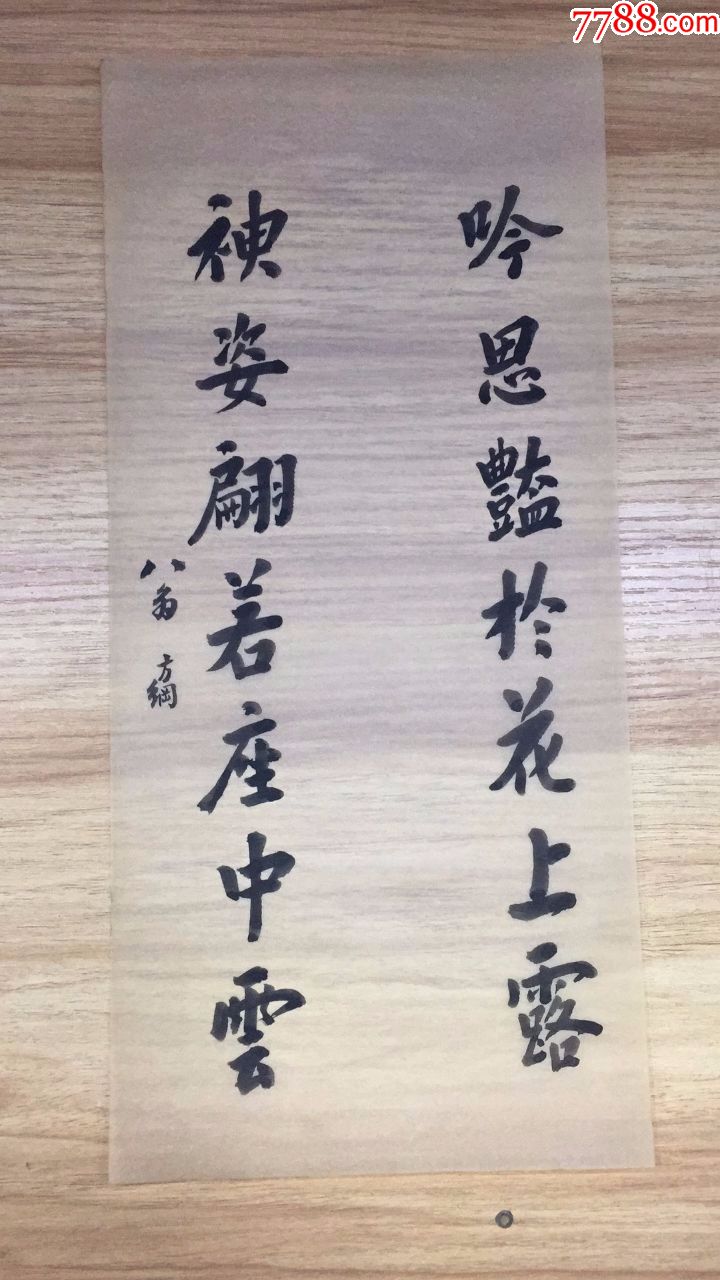 7788.com
吟思豔於花上露
神姿翩若座中雲
八翁 方綱